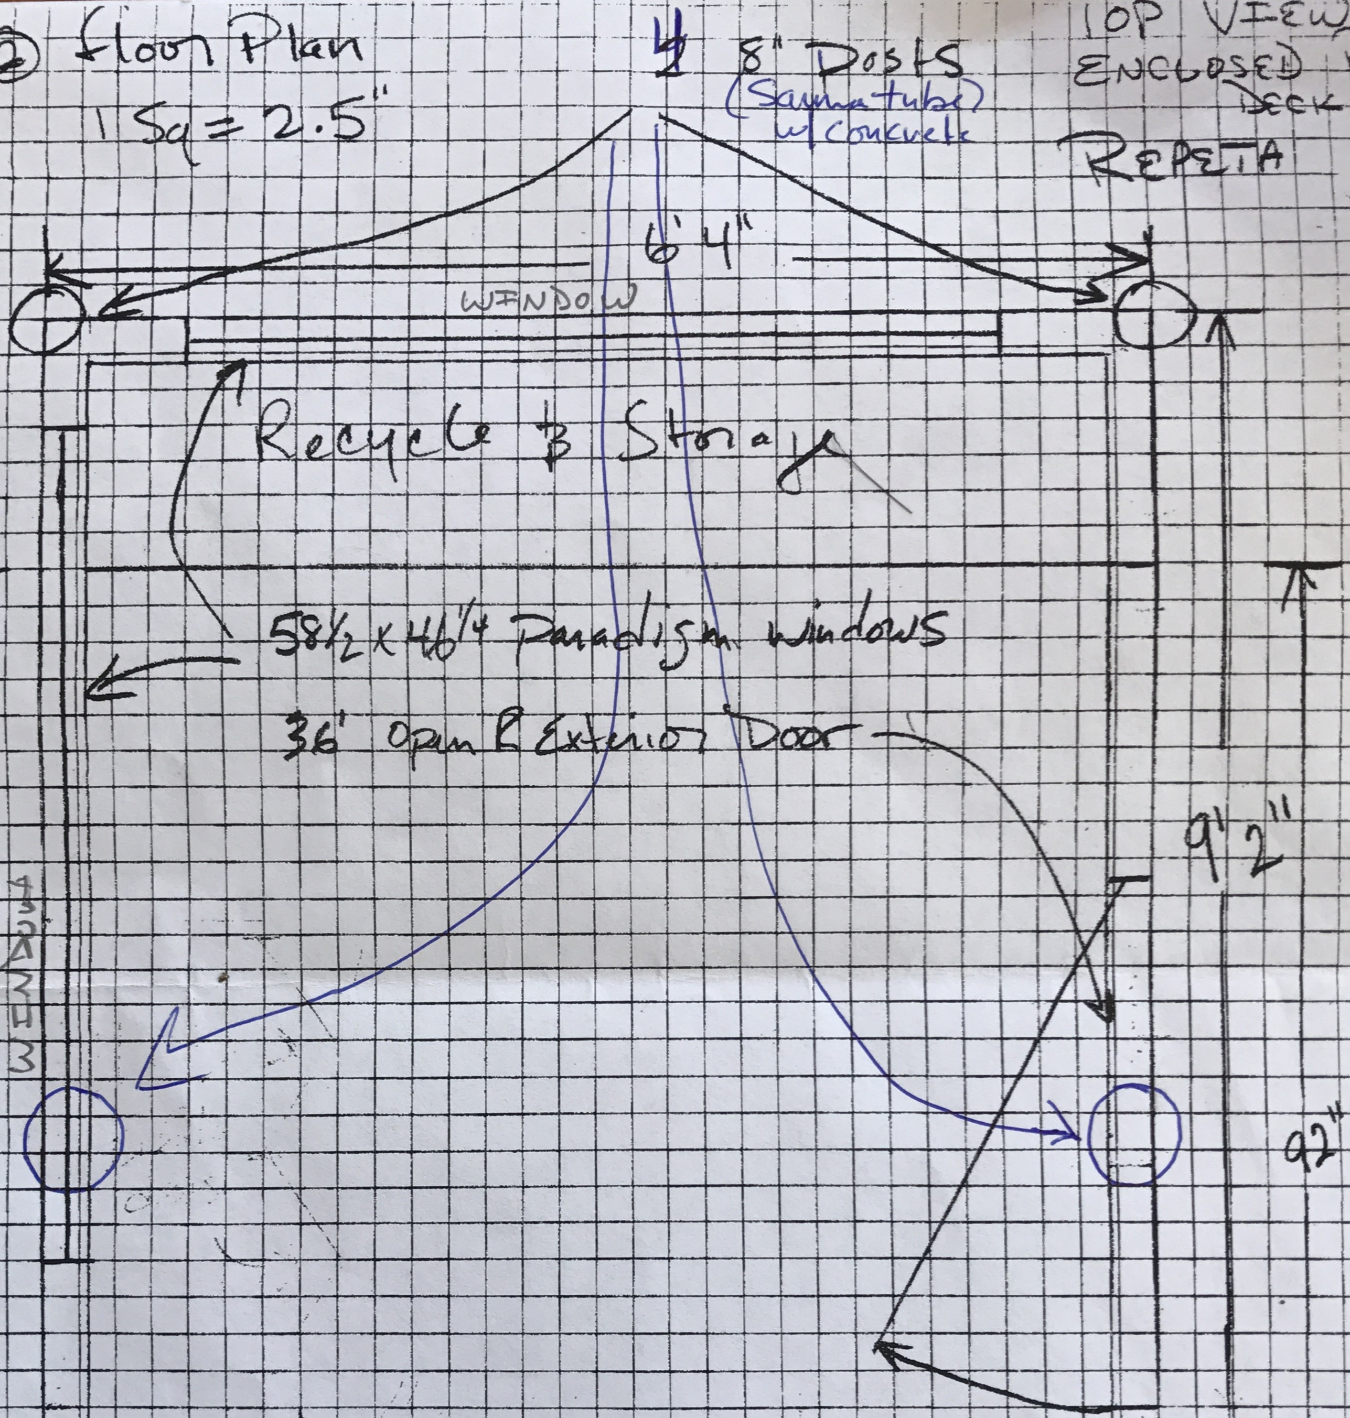 ② Floor Plan
1 Sq = 2.5"
4 8" Posts
(Saunatube)
w/ Concrete
TOP VIEW
ENCLOSED
DECK
REPETA
6' 4"
WINDOW
Recycle & Storage
58 1/2 x 46 1/4 Paradigm windows
36" Open R Exterior Door
9' 2"
WINDOW
92"